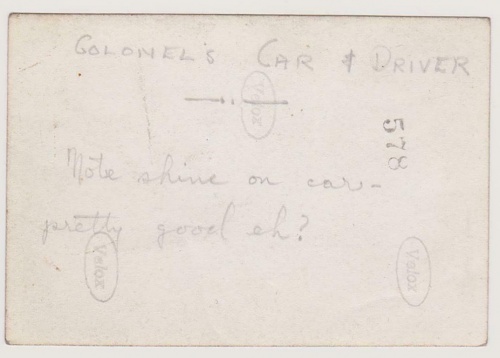 COLONEL'S CAR & DRIVER
Velox
578
Note shine on car-
pretty good eh?
Velox
Velox